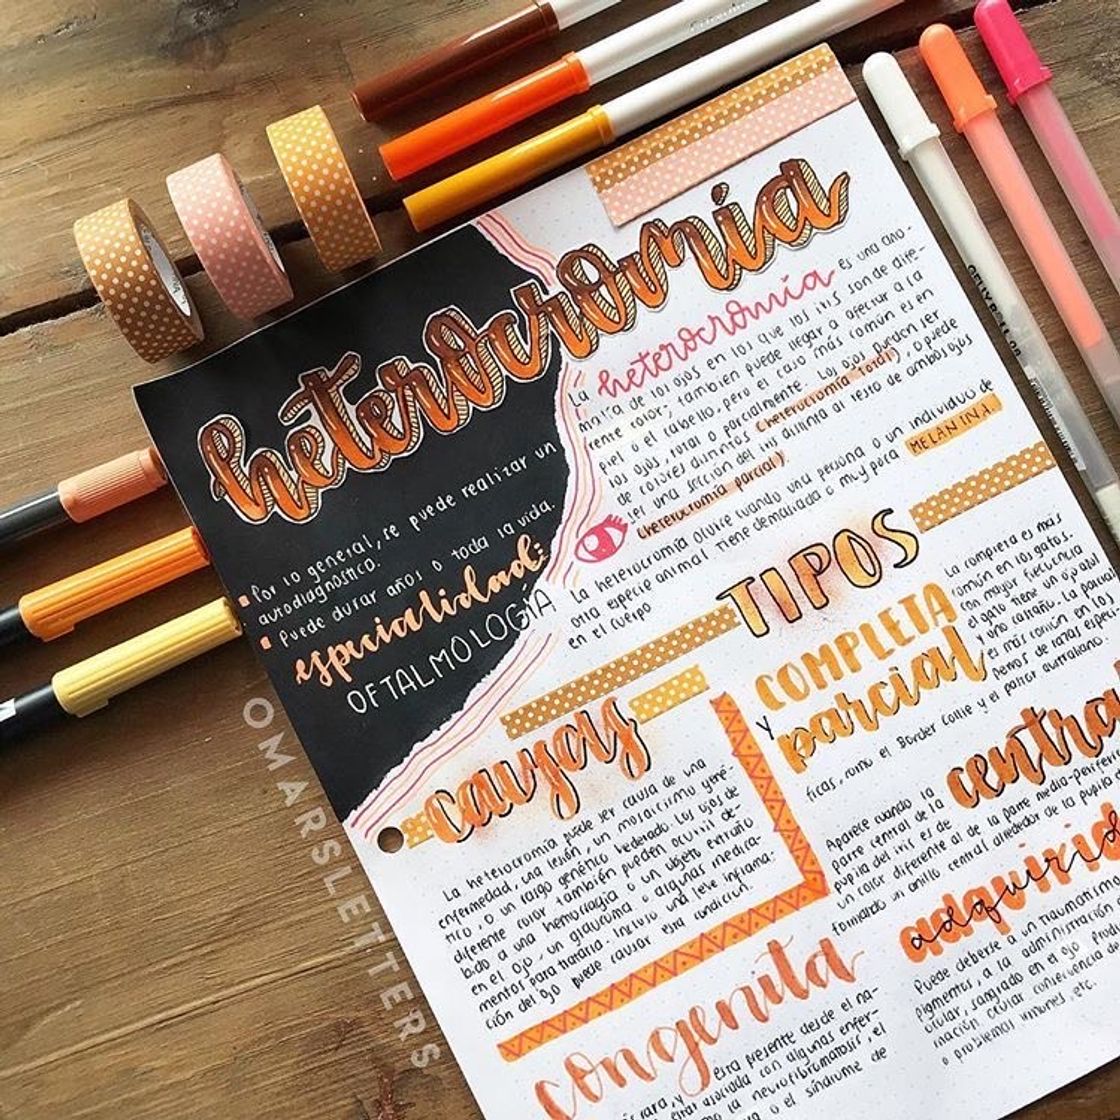 heterocromia
heterocromía es una ano-
La
malía de los ojos en los que los iris son de dife-
rente color; también puede llegar a afectar a la
piel o el cabello, pero el caso más común es en
los ojos, total o parcialmente. Los ojos pueden ser
de colores distintos (heterocromía total), o puede
ser una sección del iris distinta al resto de ambos ojos
(heterocromía parcial)
La heterocromía ocurre cuando una persona o un individuo de
otra especie animal tiene demasiada o muy poca MELANINA.
en el cuerpo
Por lo general, se puede realizar un
autodiagnóstico.
Puede durar años o toda la vida.
especialidad:
OFTALMOLOGÍA
TIPOS
COMPLETA
y parcial
La completa es más
común en los gatos.
con mayor frecuencia
el gato tiene un ojo azul
y uno castaño. La parcial
es más común en los
perros de razas especí-
ficas, como el Border Collie y el pastor australiano.
causas
La heterocromía puede ser causa de una
enfermedad, una lesión, un mosaicismo gené-
tico, o un rasgo genético hederado. Los ojos de
diferente color también pueden ocurrir de-
bido a una hemorragia o un objeto extraño
en el ojo, un glaucoma o algunas medica-
mentos para tratarla. Incluso una leve inflama-
ción del ojo puede causar esta condición.
central
Aparece cuando la
parte central de la
pupila del iris es de
un color diferente al de la parte media-perifé
formando un anillo central alrededor de la pupila
adquirida
Puede deberse a un traumatismo
pigmentos, a la administración
ocular, sangrado en el ojo,
mación ocular, consecuencia
o problemas inmunes, etc.
congenita
Está presente desde el na-
rara, y
estar asociada con algunas enfer-
como la neurofibromatosis, el
o el síndrome de
OMARSLETTERS